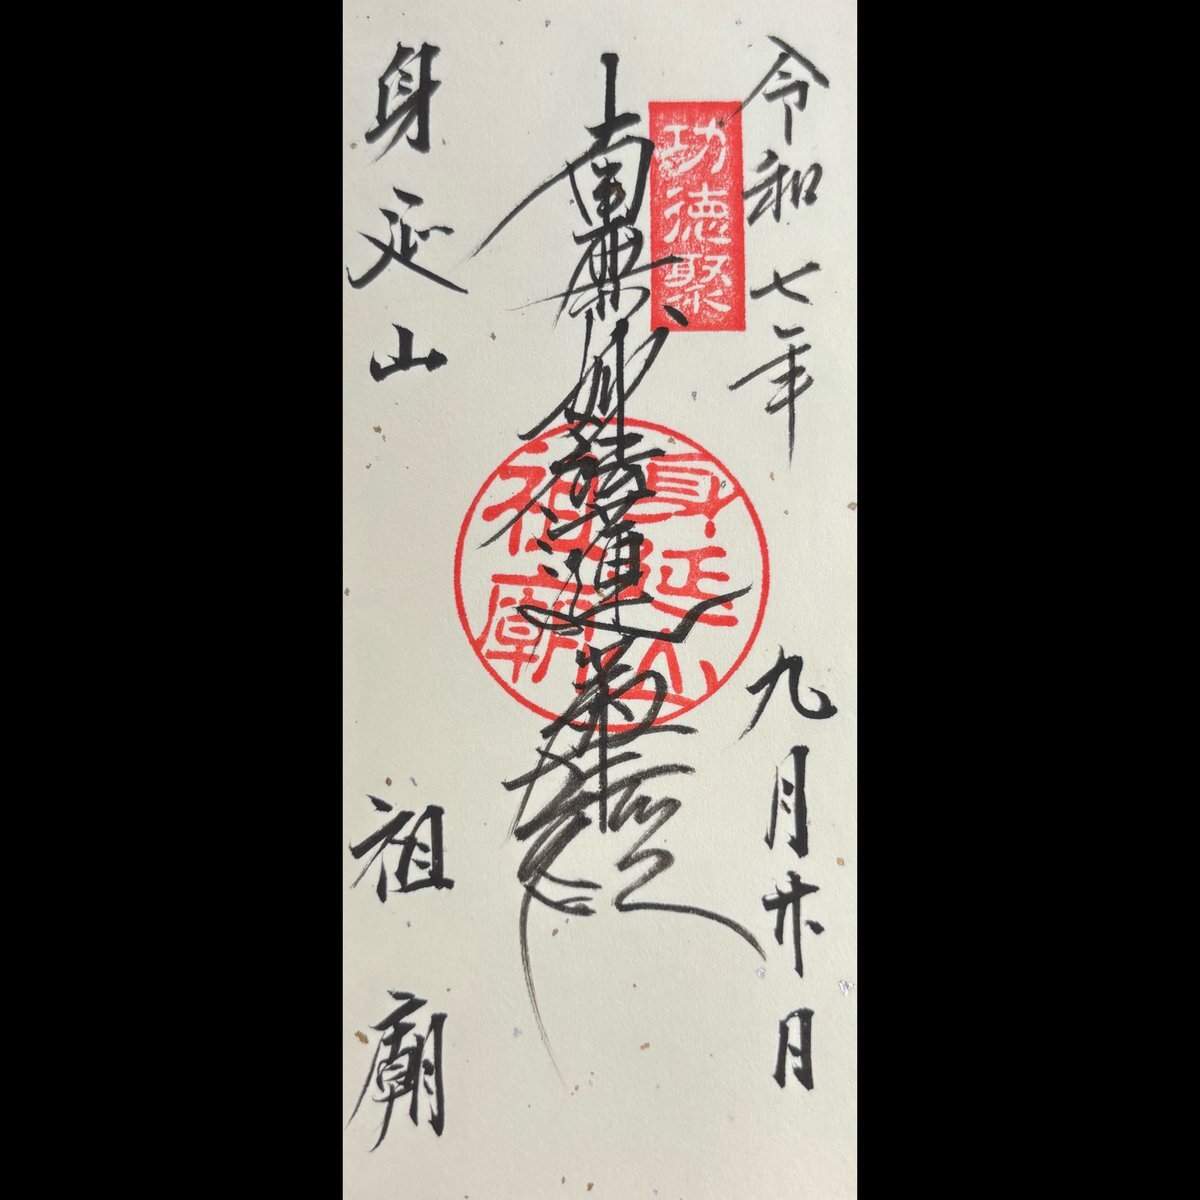 令和七年 九月 日
功徳聚
南無妙法蓮華経
身延山
祖廟
身延山 祖廟